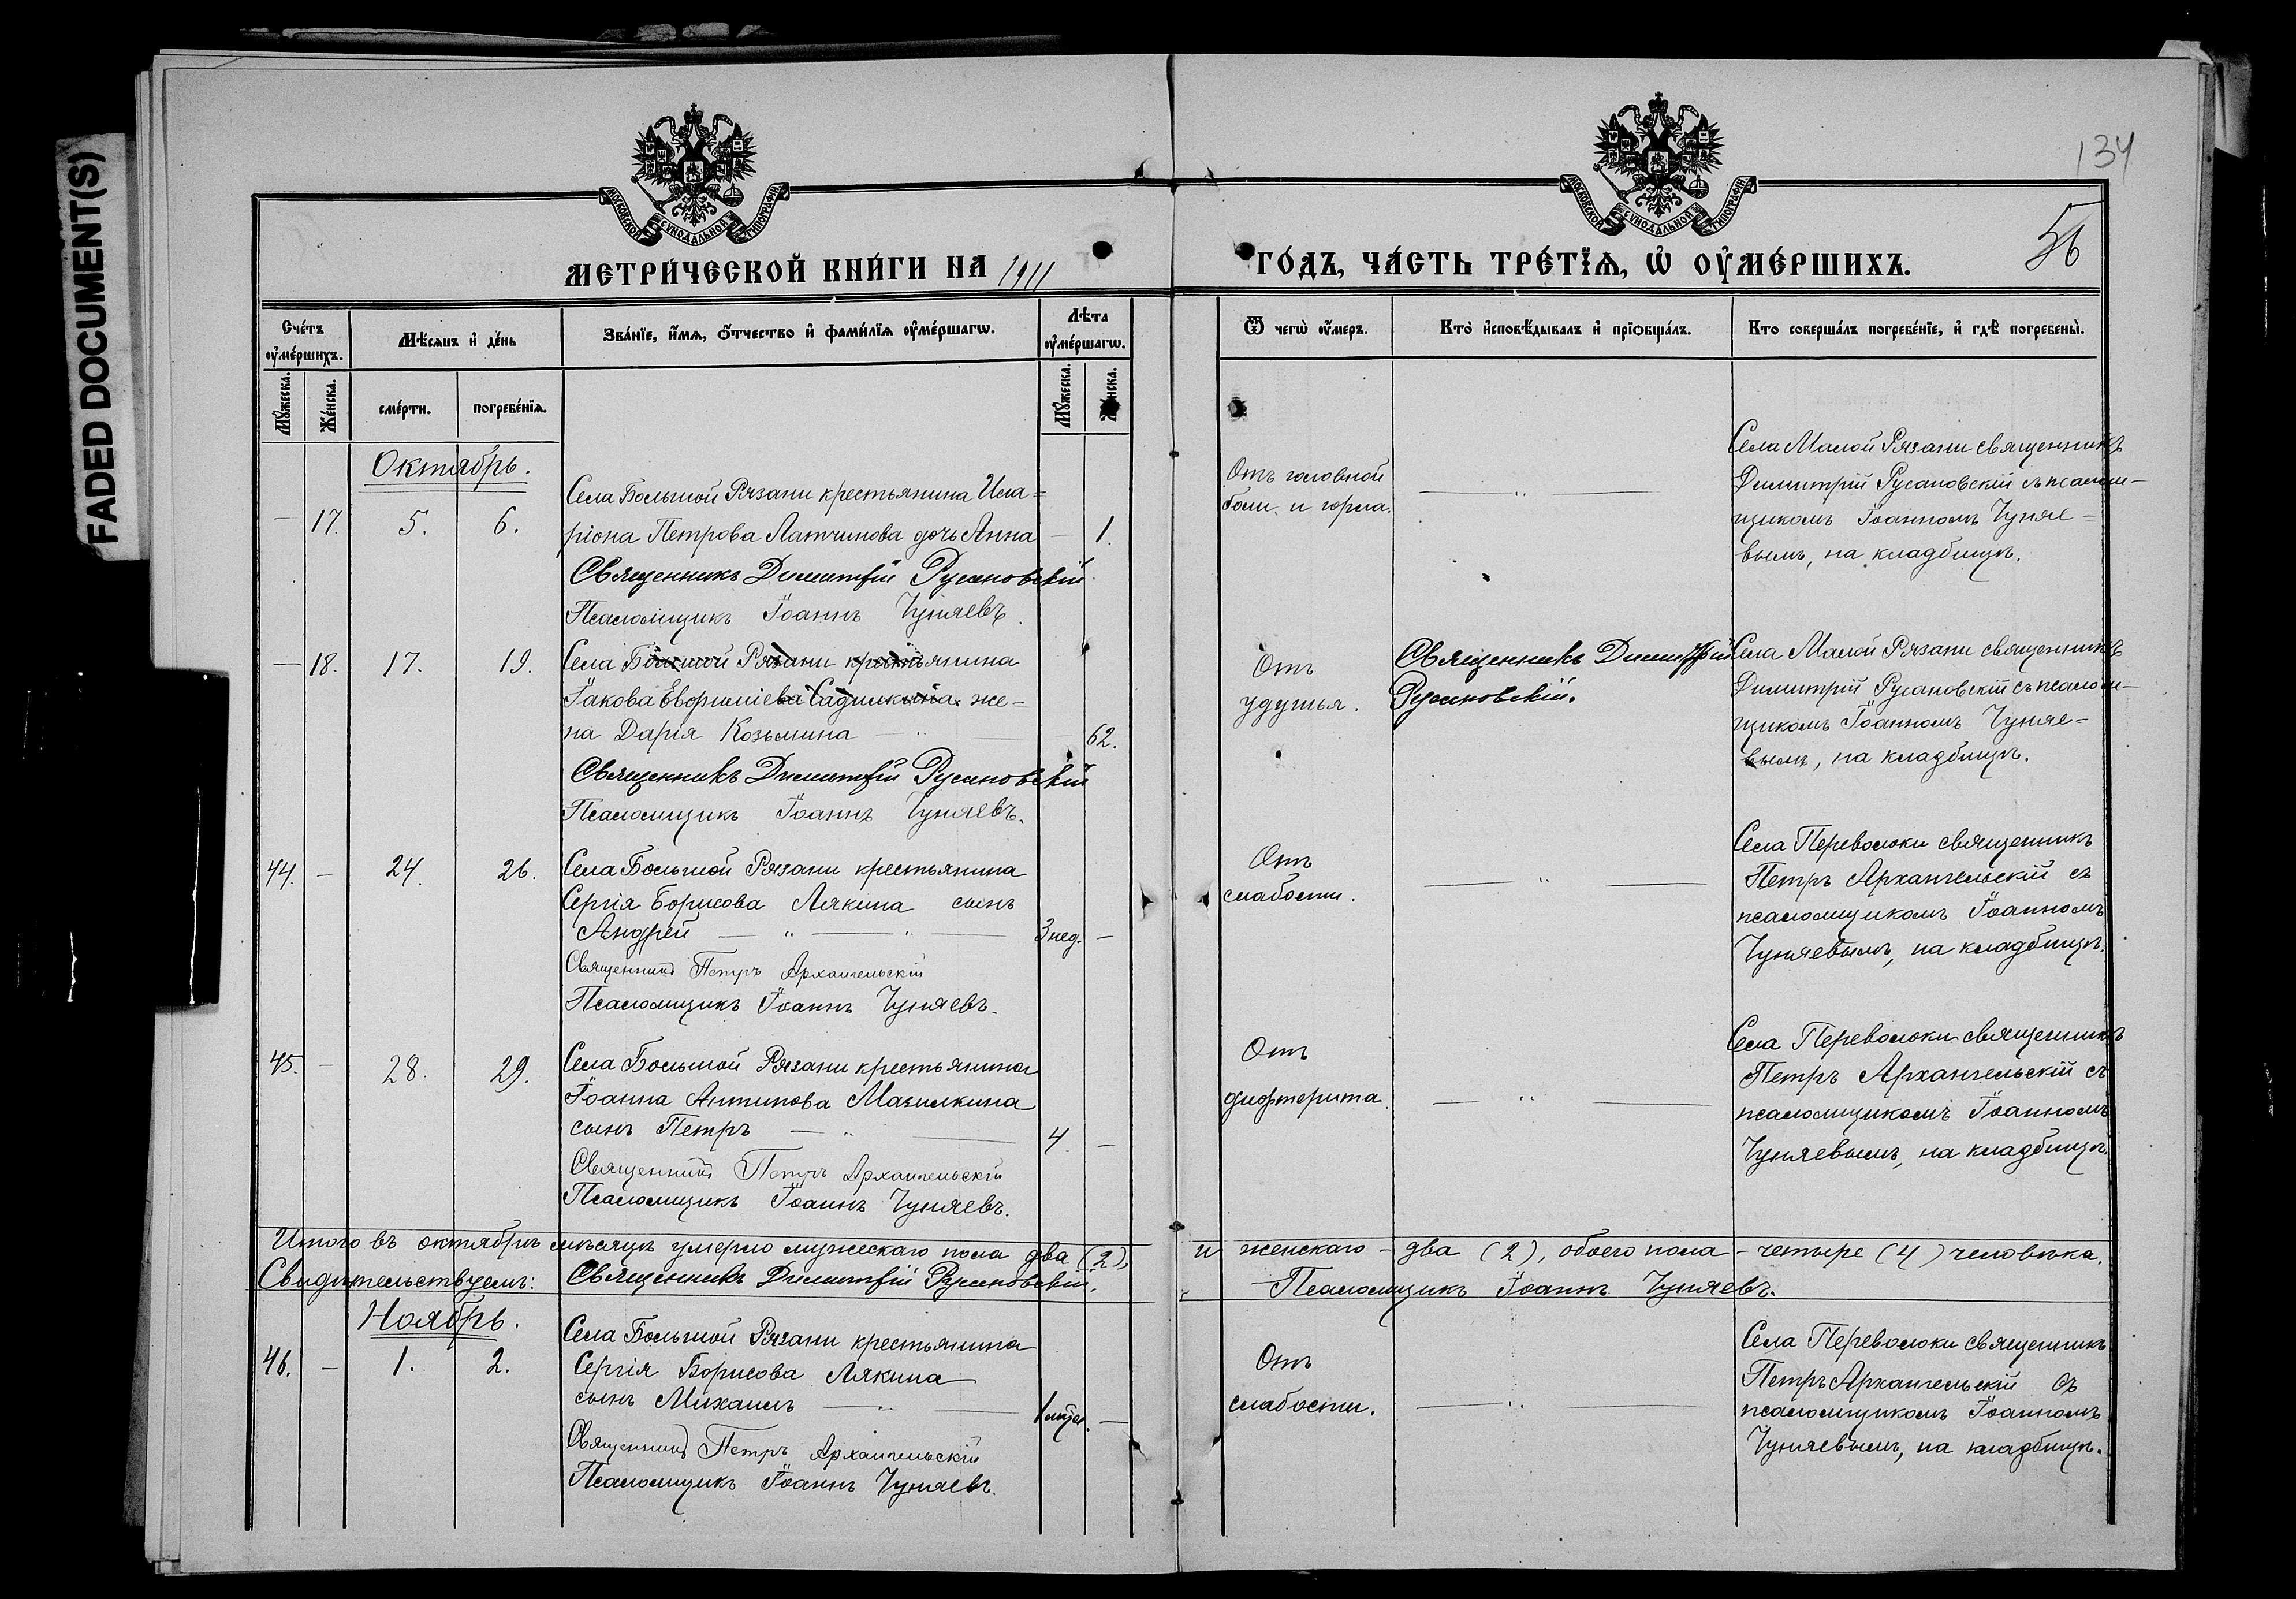 FADED DOCUMENT(S)
МОСКОВСКОЙ СѴНОДАЛЬНОЙ ТИПОГРАФІИ
МОСКОВСКОЙ СѴНОДАЛЬНОЙ ТИПОГРАФІИ
134
56
МЕТРИ́ЧЕСКОЙ КНИ́ГИ НА 1911
ГО́ДЪ, ЧА́СТЬ ТРЕ́ТЇѦ, Ѡ҆ ОУ҆МЕ́РШИХЪ.
Сче́тъ оу҆ме́ршихъ.
Мѣ́сѧцъ и҆ де́нь
Зва́нїе, и҆́мѧ, ѻ҆́тчество и҆ фами́лїѧ оу҆ме́ршагѡ.
Лѣ́та оу҆ме́ршагѡ.
Ѿ чегѡ̀ оу҆́меръ.
Кто̀ и҆сповѣ́дывалъ и҆ прїѡбща́лъ.
Кто соверша́лъ погребе́нїе, и҆ гдѣ̀ погребены̀.
Мꙋ́жеска.
Же́нска.
сме́рти.
погребе́нїѧ.
Мꙋ́жеска.
Же́нска.
Октябрь.
— 17. 5. 6.
Села Большой Рязани крестьянина Ила=
ріона Петрова Латчинова дочь Анна — 1.
Священникъ Димитрій Русановскій
Псаломщикъ Іоаннъ Чуняевъ.
Отъ головной
боли и горла.
— " —
Села Малой Рязани священникъ
Димитрій Русановскій съ псалом–
щикомъ Іоанномъ Чуняе=
вымъ, на кладбищѣ.
— 18. 17. 19.
Села Большой Рязани крестьянина
Іакова Евфиміева Садилкина же–
на Дарія Козьмина — " — 62.
Священникъ Димитрій Русановскій
Псаломщикъ Іоаннъ Чуняевъ.
Отъ
удушья.
Священникъ Димитрій
Русановскій.
Села Малой Рязани священникъ
Димитрій Русановскій съ псалом–
щикомъ Іоанномъ Чуняе=
вымъ, на кладбищѣ.
44. — 24. 26.
Села Большой Рязани крестьянина
Сергія Борисова Лякина сынъ
Андрей — " — " — 3 нед. —
Священникъ Петръ Архангельскій
Псаломщикъ Іоаннъ Чуняевъ.
Отъ
слабости.
— " —
Села Переволоки священникъ
Петръ Архангельскій съ
псаломщикомъ Іоанномъ
Чуняевымъ, на кладбищѣ.
45. — 28. 29.
Села Большой Рязани крестьянина
Іоанна Антипова Мазилкина
сынъ Петръ — " — 4. —
Священникъ Петръ Архангельскій
Псаломщикъ Іоаннъ Чуняевъ.
Отъ
дифтерита.
— " —
Села Переволоки священникъ
Петръ Архангельскій съ
псаломщикомъ Іоанномъ
Чуняевымъ, на кладбищѣ.
Итого въ октябрѣ мѣсяцѣ умерло мужескаго пола два (2), и женскаго – два (2), обоего пола – четыре (4) человѣка.
Свидѣтельствуемъ: Священникъ Димитрій Русановскій. Псаломщикъ Іоаннъ Чуняевъ.
Ноябрь.
46. — 1. 2.
Села Большой Рязани крестьянина
Сергія Борисова Лякина
сынъ Михаилъ — " — 1 мѣс. —
Священникъ Петръ Архангельскій
Псаломщикъ Іоаннъ Чуняевъ.
Отъ
слабости.
— " —
Села Переволоки священникъ
Петръ Архангельскій съ
псаломщикомъ Іоанномъ
Чуняевымъ, на кладбищѣ.